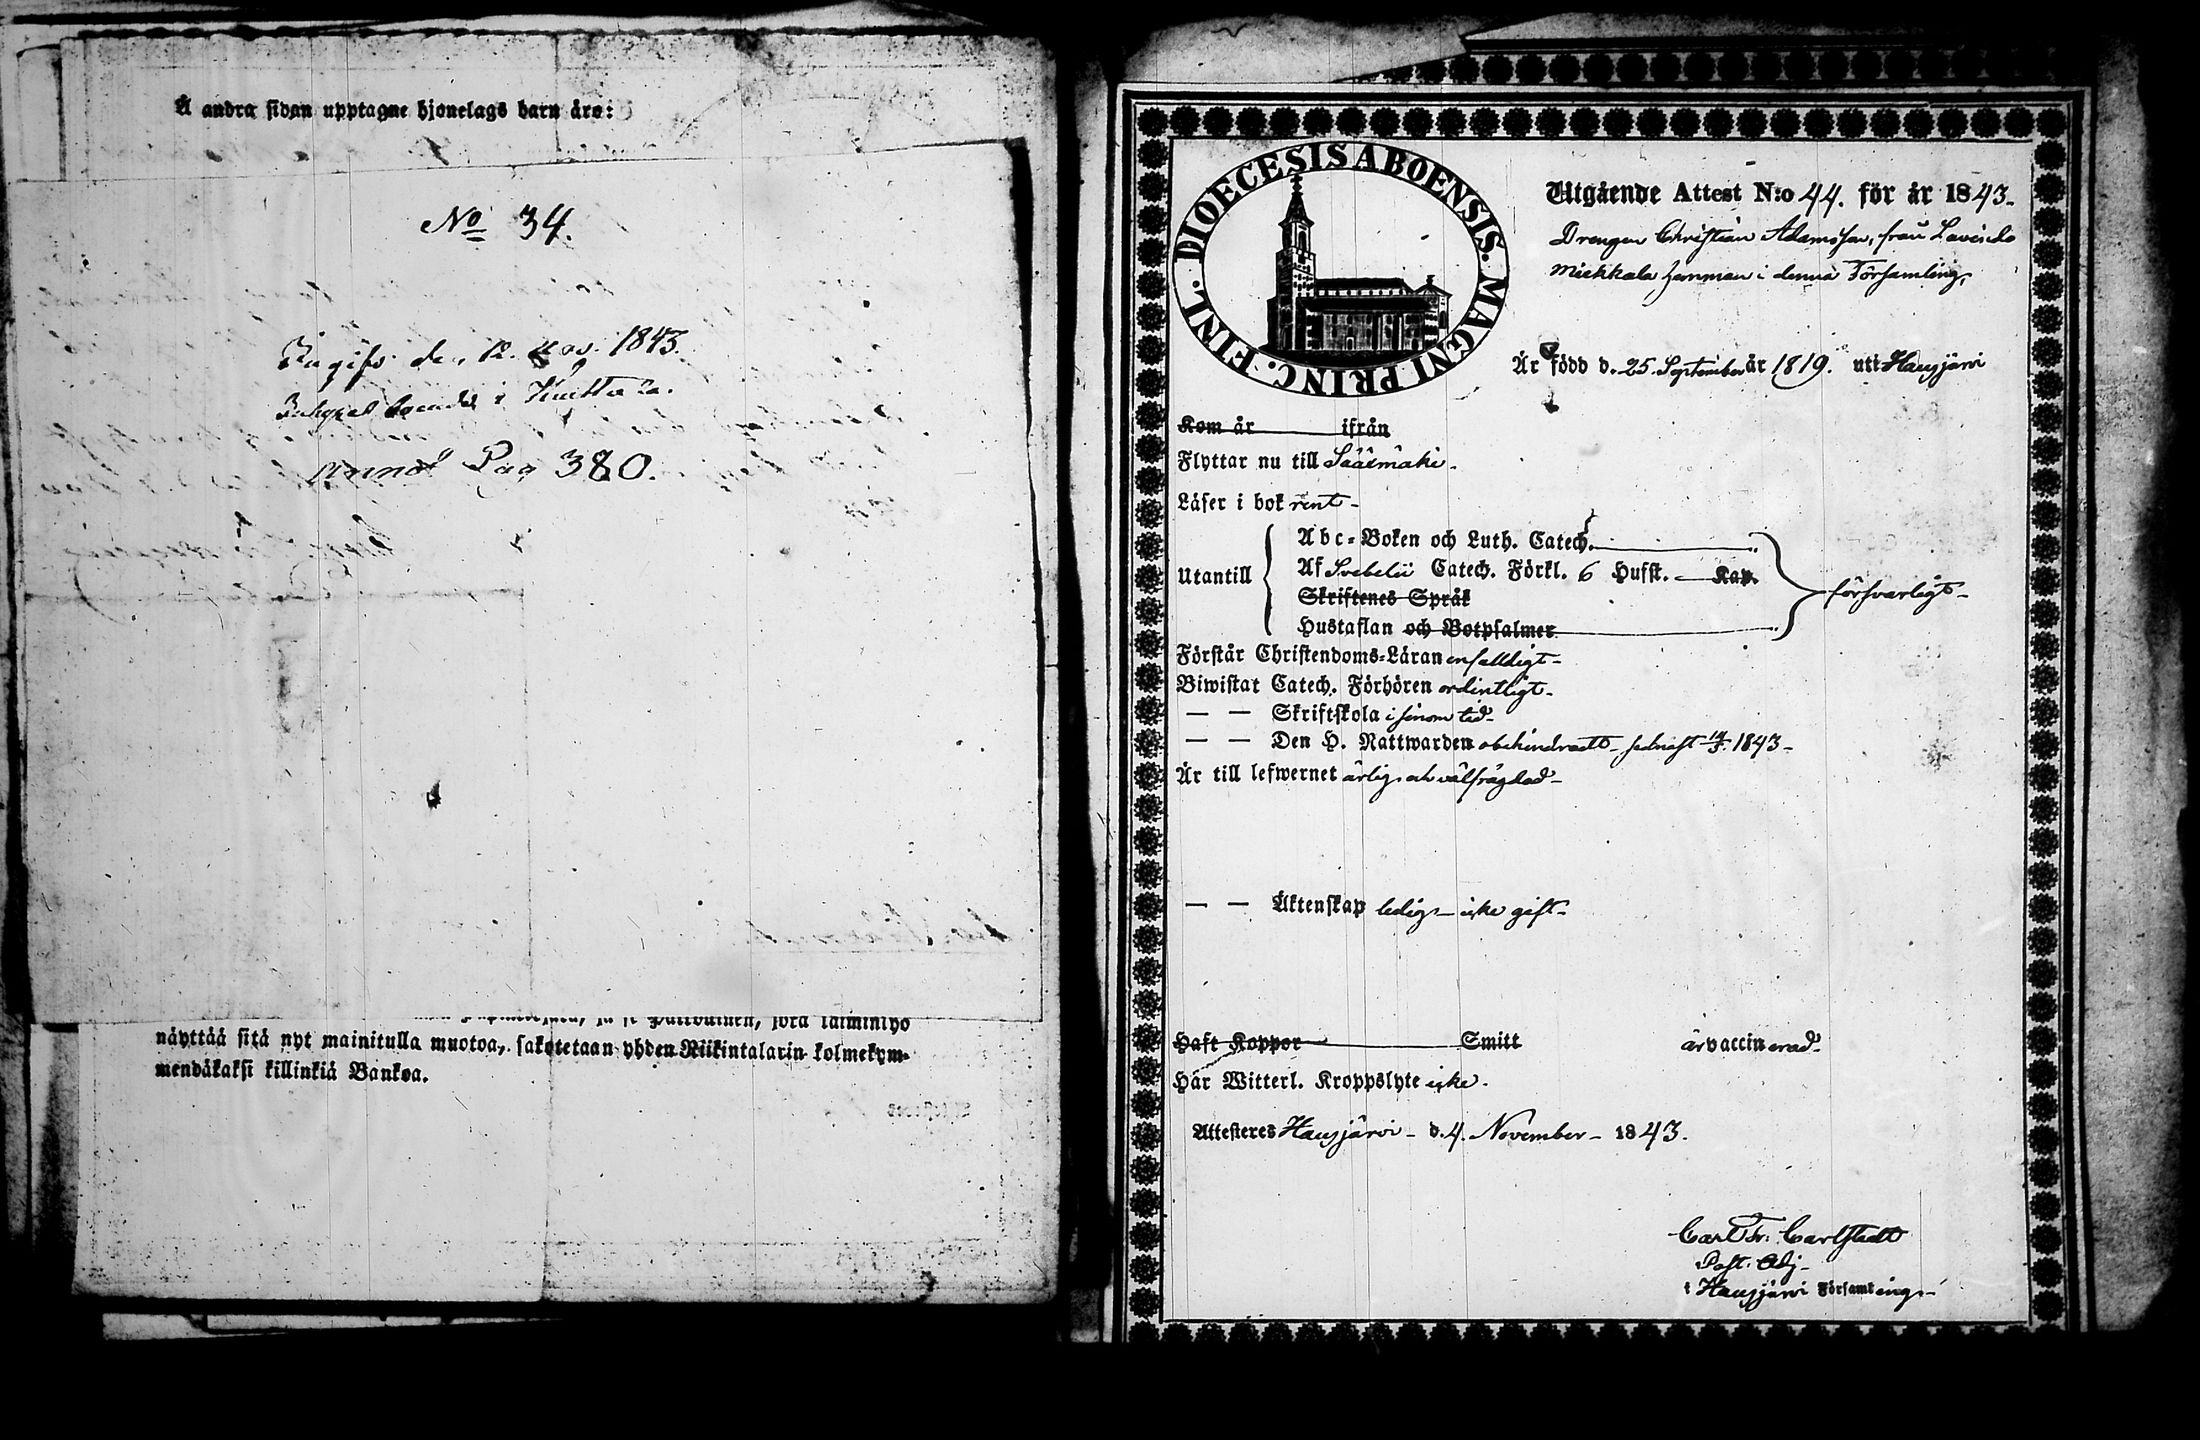 Å andra sidan upptagne hjonelags barn äro:
No 34.
Ingifv. den 12. Nov. 1843.
i
Annot Pag 380.
näyttää sitä nyt mainitulla muotoa, sakotetaan yhden Riikintalarin kolmekym-
mendäkaksi killinkiä Bankoa.
DIOECESIS ABOENSIS. MAGNI PRINC. FINL.
Utgående Attest N:o 44. för år 1843.
Drengen Christian Adamsson, från
i denna Församling,
Är född d. 25. September år 1819. uti Hausjärvi
Kom år ifrån
Flyttar nu till Sääsmäki.
Läser i bok rent-
Utantill
Abc-Boken och Luth. Catech.
Af Svebelii Catech. Förkl. 6 Hufst. Kap.
Skriftenes Språk
Hustaflan och Botpsalmer
försvarligt-
Förstår Christendoms-Läran enfalldigt-
Biwistat Catech. Förhören ordintligt-
— — Skriftskola i sinom tid-
— — Den H. Nattwarden obehindradt- sednast 1843-
Är till lefwernet ärlig och välfrägdad-
— — Äktenskap ledig- icke gift-
Haft Koppor Smitt är vaccinerad-
Har Witterl. Kroppslyte icke.
Attesteres Hausjärvi- d. 4. November- 1843.
Carl Fr. Carlstedt
Past. Adj-
i Hausjärvi Församling-